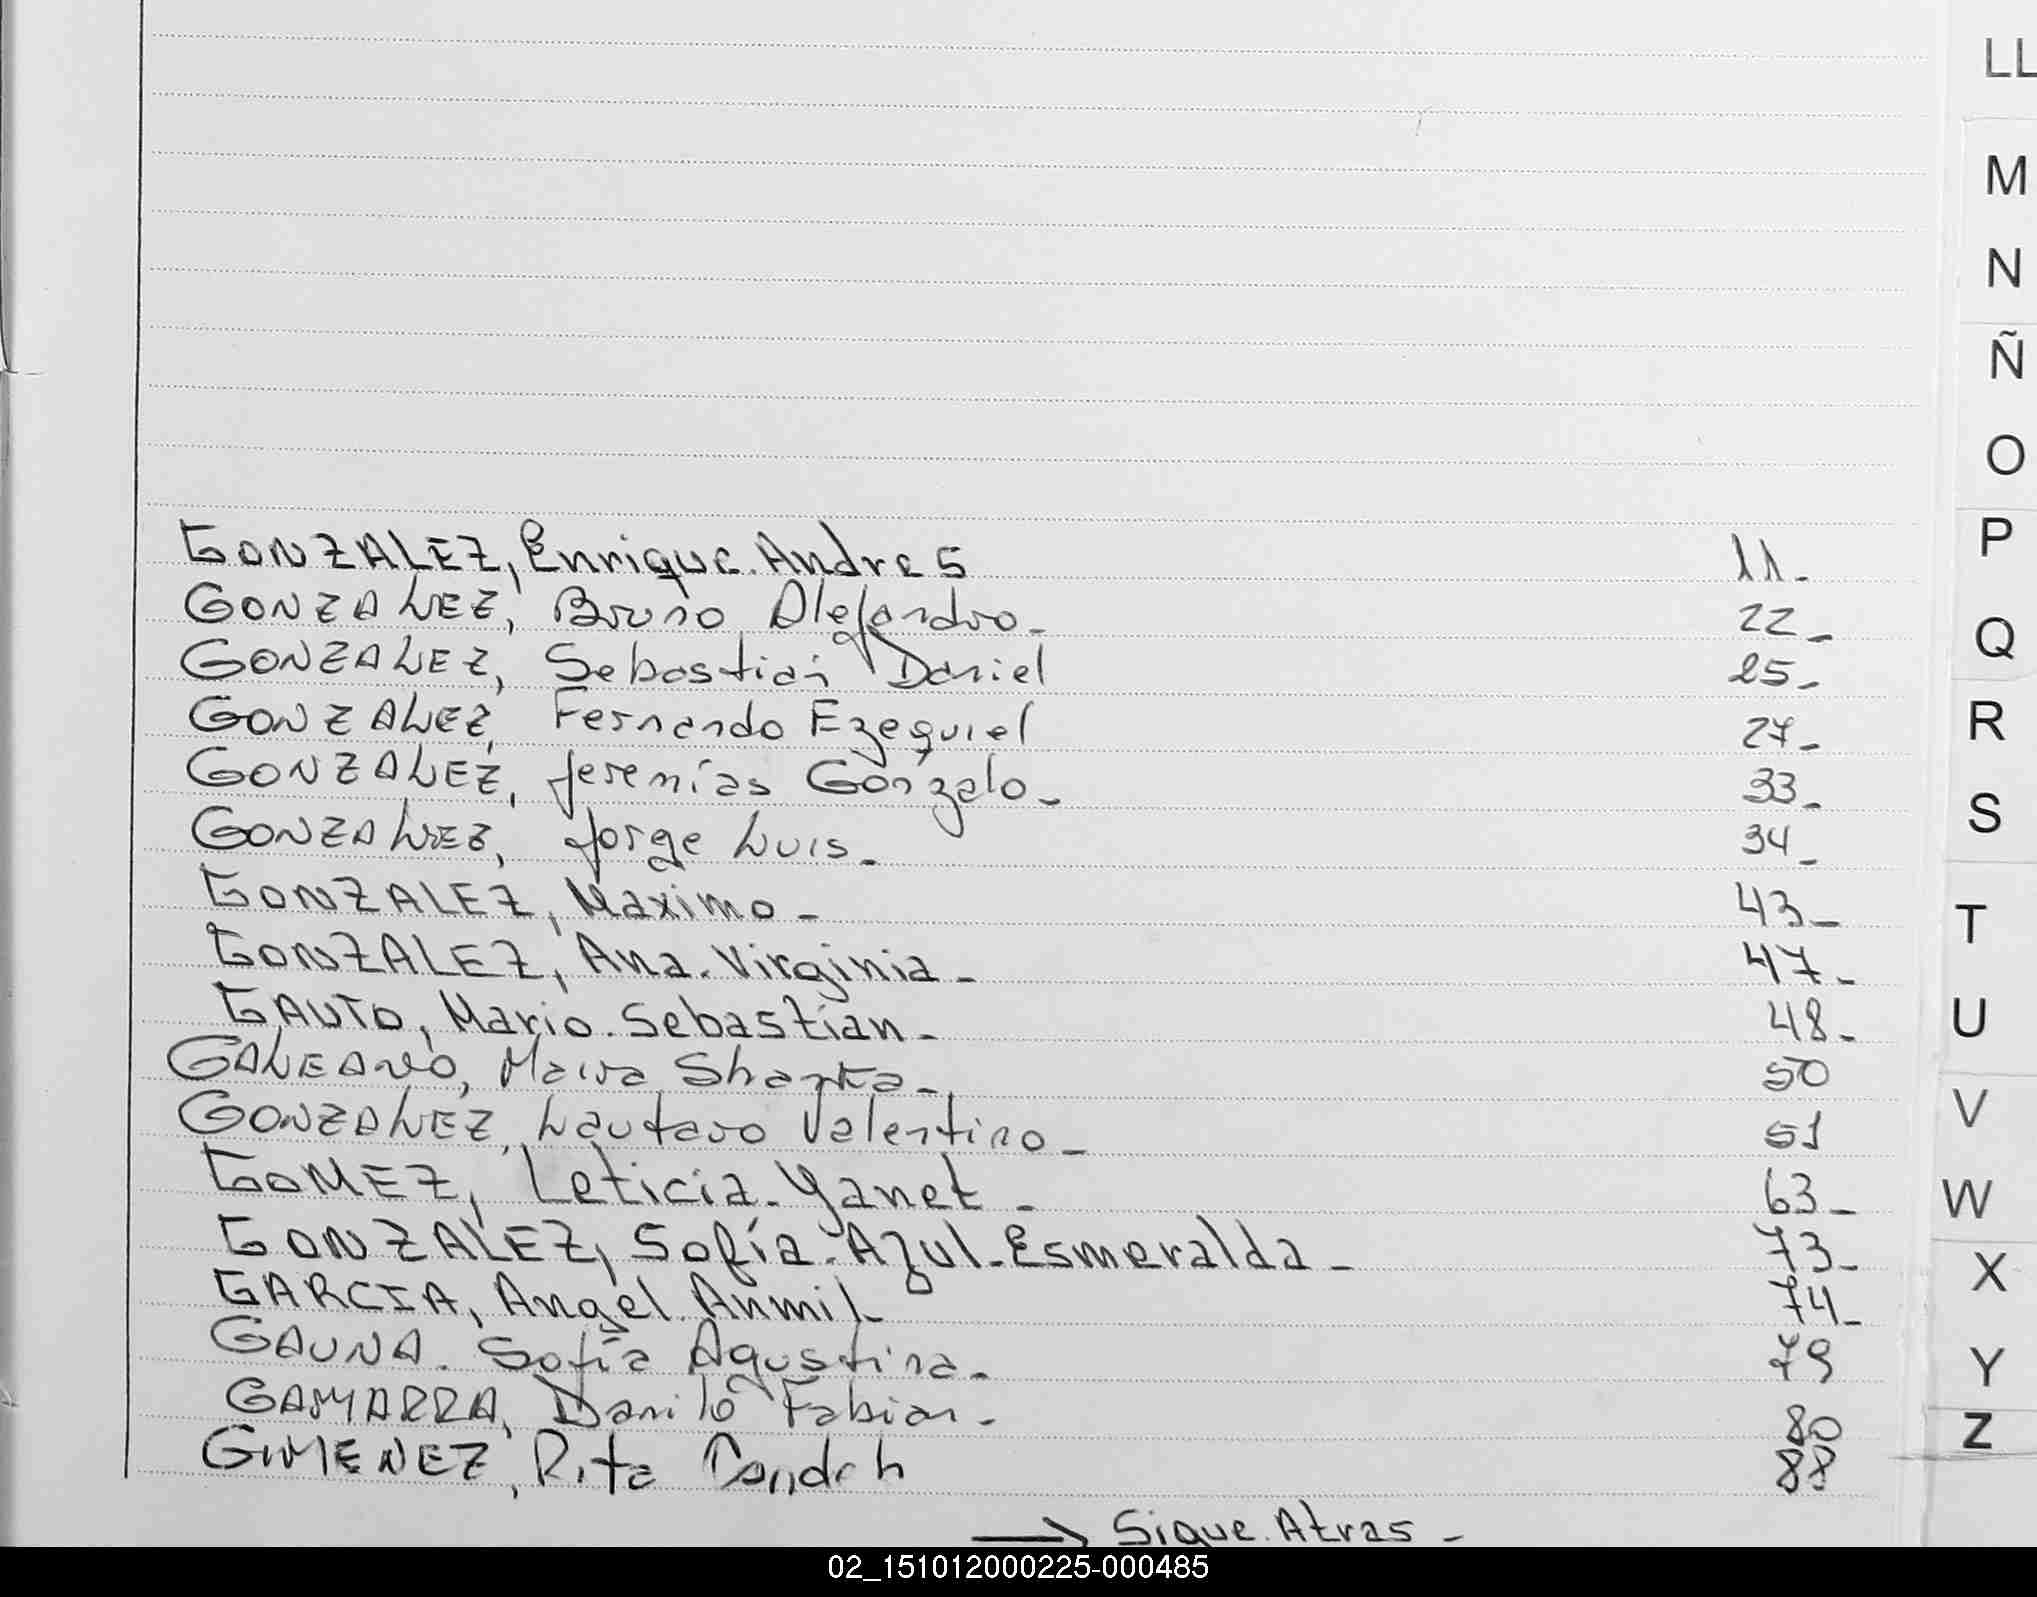 GONZALEZ, Enrique. Andres 11-
GONZALEZ, Bruno Alejandro- 22-
GONZALEZ, Sebastian Daniel 25-
GONZALEZ, Fernando Ezequiel 27-
GONZALEZ, Jeremías Gonzalo- 33-
GONZALEZ, Jorge Luis- 34-
GONZALEZ, Maximo- 43-
GONZALEZ, Ana. Virginia- 47-
GAUTO, Mario. Sebastian- 48-
GALEANO, Maira 50
GONZALEZ, Lautaro Valentino- 51
GOMEZ, Leticia. Yanet- 63-
GONZALEZ, Sofía. Azul. Esmeralda- 73-
GARCIA, Angel. 74-
GAUNA. Sofía Agustina- 79
GAMARRA, Danilo Fabian- 80
GIMENEZ, Rita 88
→ Sigue. Atras-
LL
M
N
Ñ
O
P
Q
R
S
T
U
V
W
X
Y
Z
02_151012000225-000485